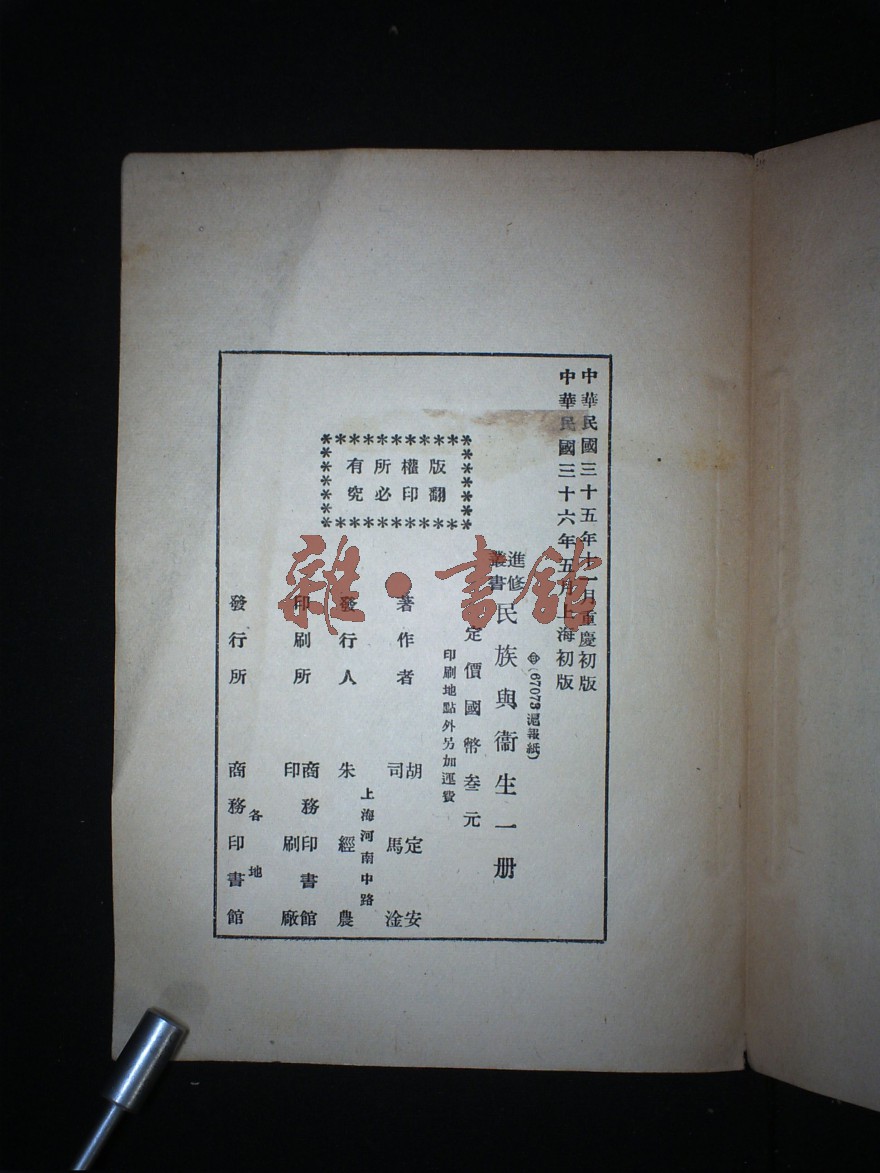 中華民國三十五年十一月重慶初版
中華民國三十六年五月上海初版
㊥(67073滬報紙)
進修
叢書
民族與衞生一册
定價國幣叁元
印刷地點外另加運費
版權所有
翻印必究
著作者
胡定安
司馬淦
發行人
上海河南中路
朱經農
印刷所
商務印書館
印刷廠
發行所
各地
商務印書館
雜·書館